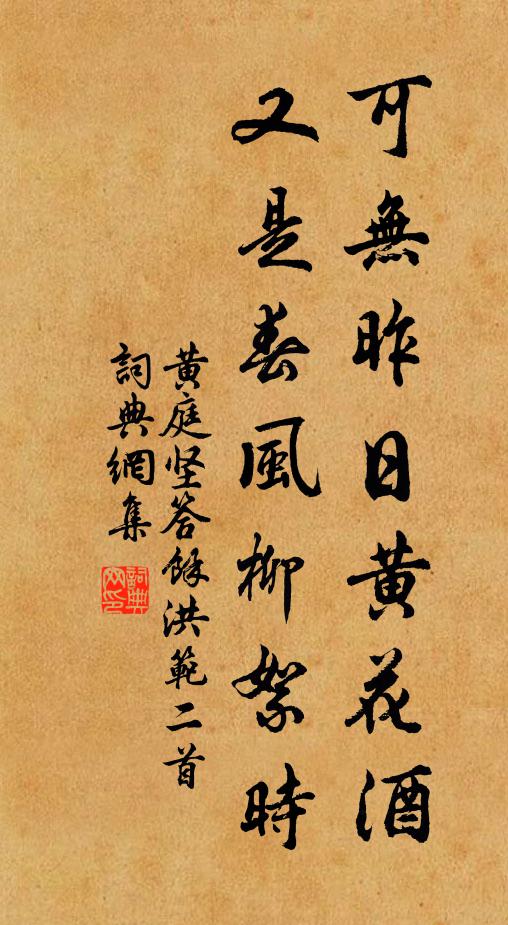 可無昨日黄花酒
又是春風柳絮時
黄庭坚答餘洪範二首
詞典網集
詞典网印